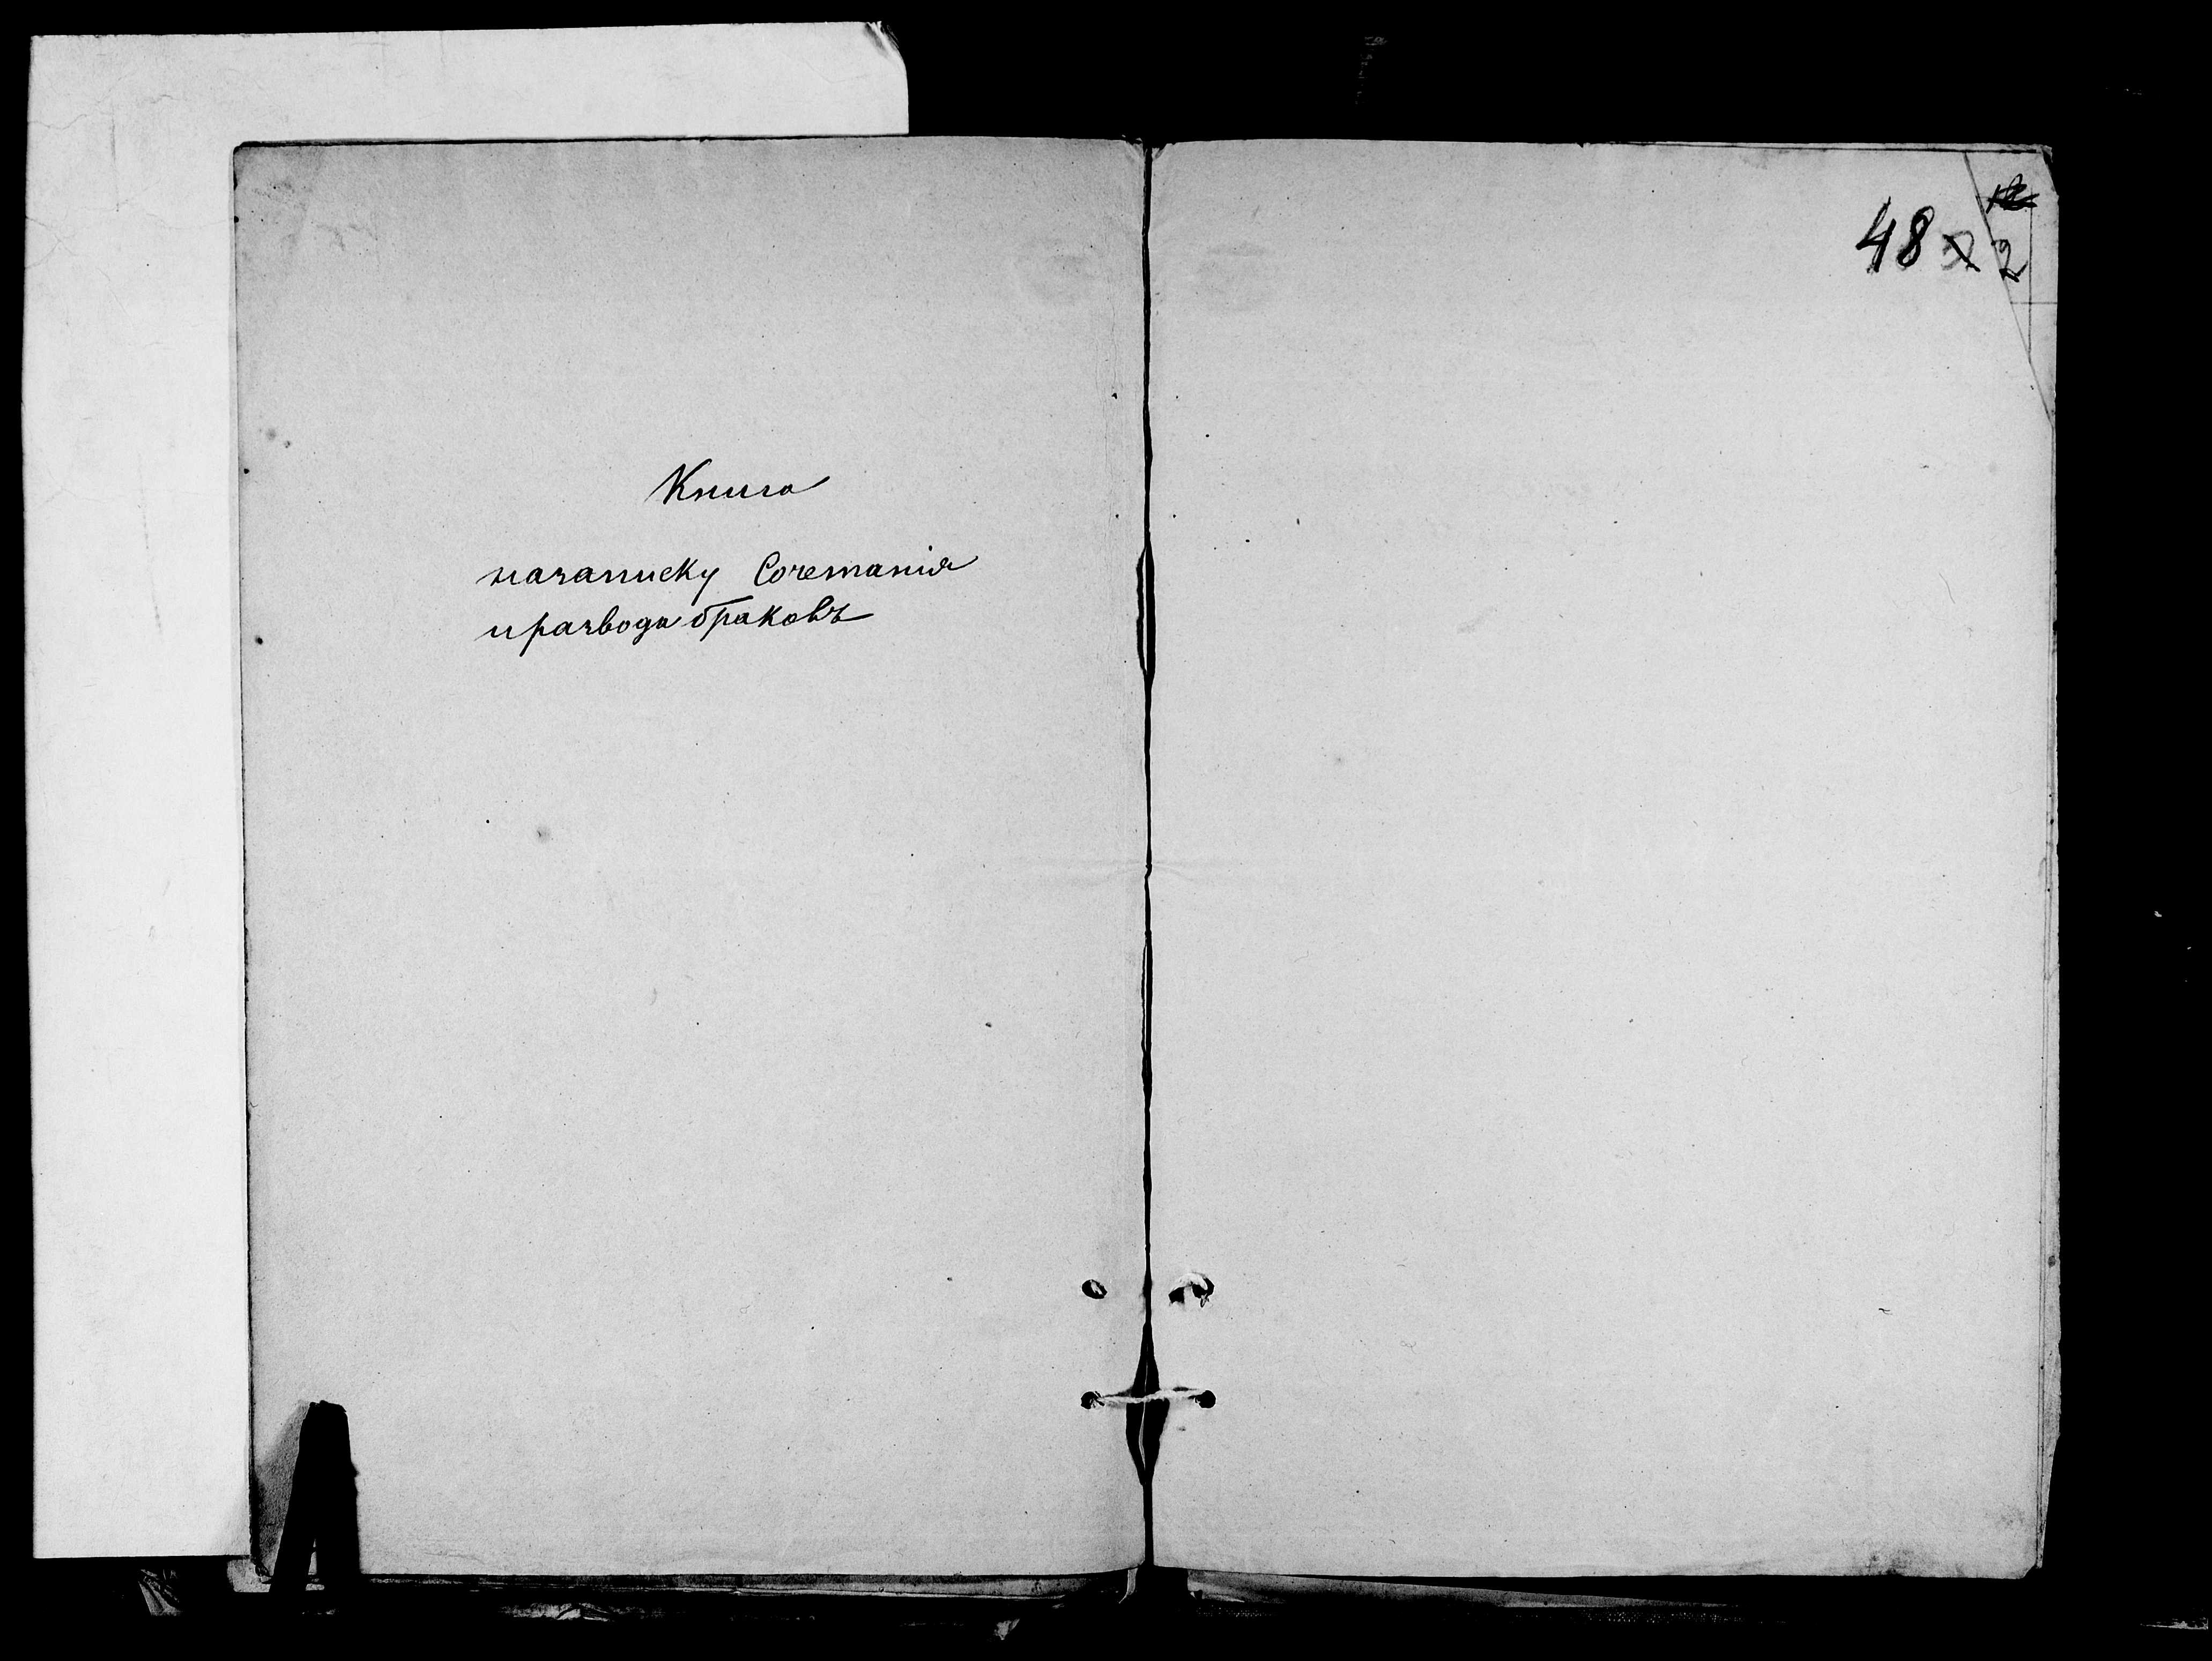 Книга
назаписку Сочетанія
иразвода браковъ
48 2